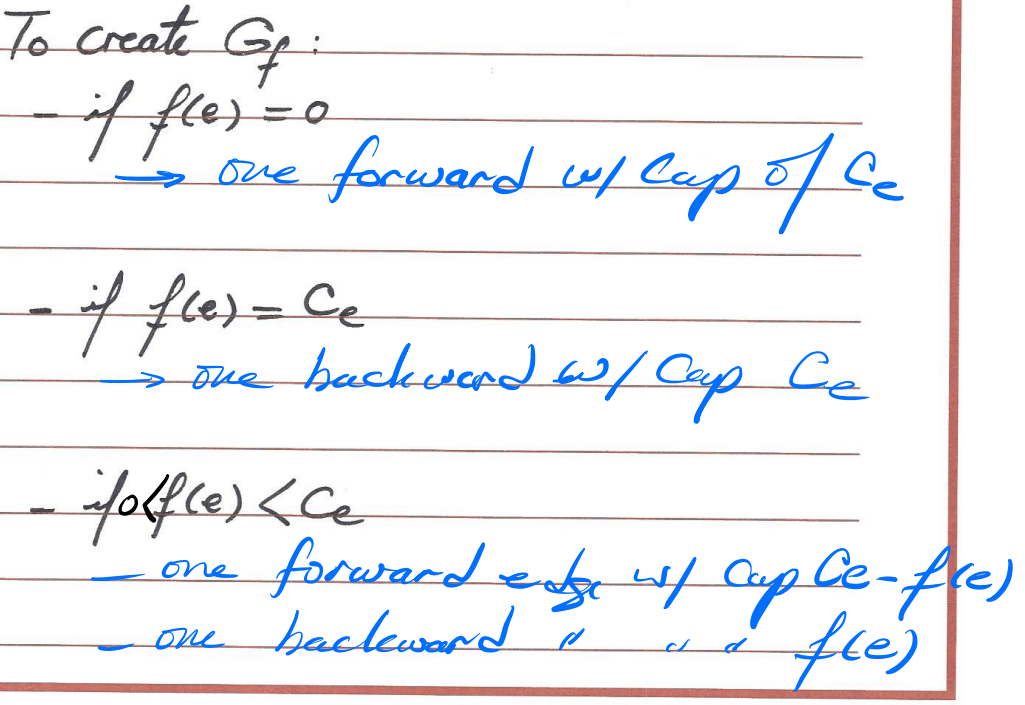 To create Gf :
- if f(e) = 0
→ one forward w/ Cap of Ce
- if f(e) = Ce
→ one backward w/ Cap Ce
- if 0<f(e) < Ce
- one forward edge w/ Cap Ce-f(e)
- one backward " " " f(e)